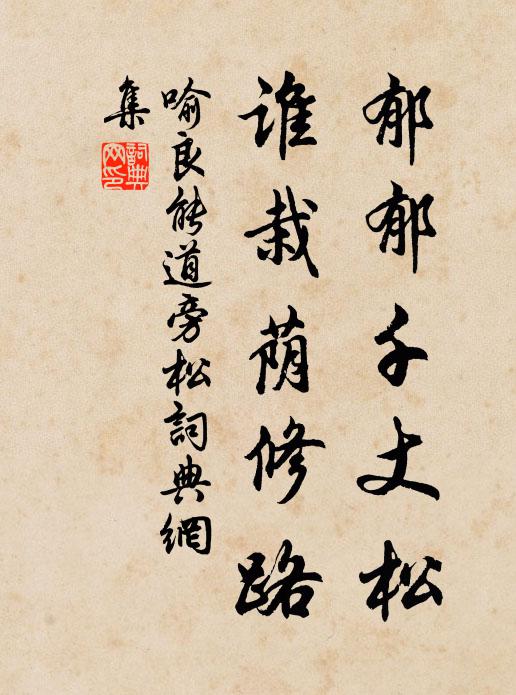 郁郁千丈松
誰栽荫修路
喻良能道旁松詞典網
集
詞典
网印